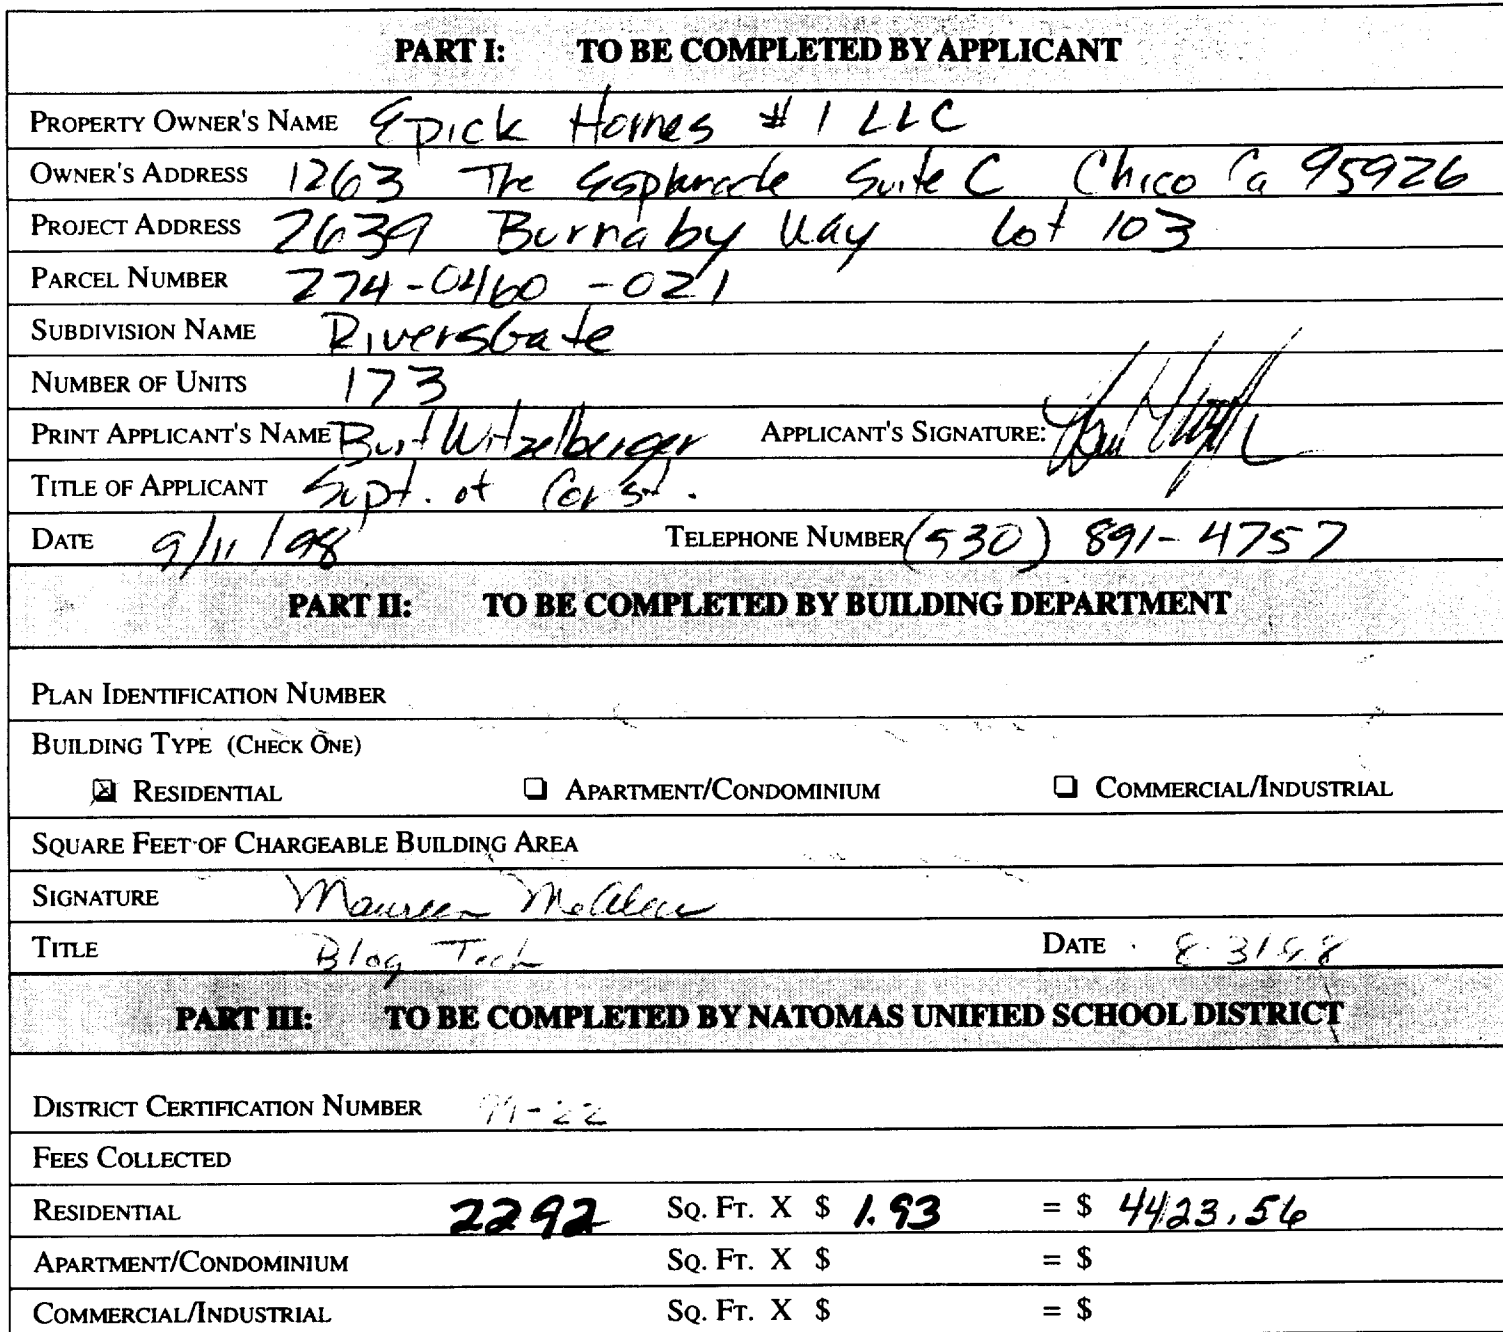 PART I: TO BE COMPLETED BY APPLICANT
PROPERTY OWNER'S NAME Epick Homes #1 LLC
OWNER'S ADDRESS 1263 The Esplanade Suite C Chico Ca 95926
PROJECT ADDRESS 2639 Burnaby Way Lot 103
PARCEL NUMBER 274-0460-021
SUBDIVISION NAME RiversGate
NUMBER OF UNITS 173
PRINT APPLICANT'S NAME Burt Witzelberger APPLICANT'S SIGNATURE:
TITLE OF APPLICANT Supt. of Const.
DATE 9/11/98 TELEPHONE NUMBER (530) 891-4757
PART II: TO BE COMPLETED BY BUILDING DEPARTMENT
PLAN IDENTIFICATION NUMBER
BUILDING TYPE (CHECK ONE)
☒ RESIDENTIAL ❑ APARTMENT/CONDOMINIUM ❑ COMMERCIAL/INDUSTRIAL
SQUARE FEET OF CHARGEABLE BUILDING AREA
SIGNATURE Maureen
TITLE Bldg Tech DATE 8-31-98
PART III: TO BE COMPLETED BY NATOMAS UNIFIED SCHOOL DISTRICT
DISTRICT CERTIFICATION NUMBER 99-22
FEES COLLECTED
RESIDENTIAL 2292 SQ. FT. X $ 1.93 = $ 4423.56
APARTMENT/CONDOMINIUM SQ. FT. X $ = $
COMMERCIAL/INDUSTRIAL SQ. FT. X $ = $